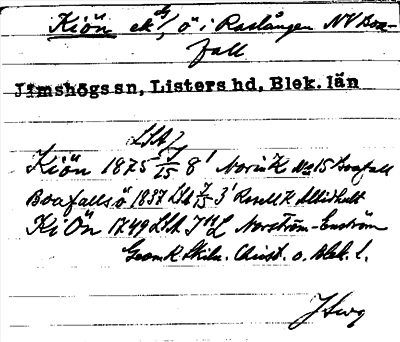 Kiön ek, ö i Raslången NV Boa-
fall
Jämshögs sn, Listers hd, Blek. län
LSA J
Kiön 1875 15 8' Norin K No 15 Boafall
Boafalls ö 1837 LSA J 15 3' Rosell K Ållidhult
KiÖn 1749 LSA Norström-Enström
Geom K Skån. Christ. o. Blek. l.